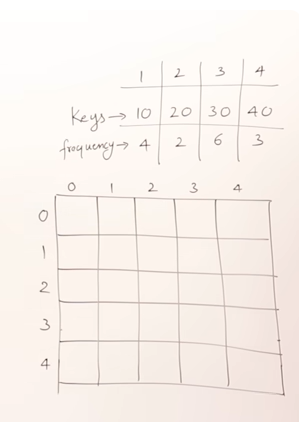 1 2 3 4
Keys→ 10 20 30 40
froquency→ 4 2 6 3
0 1 2 3 4
0
1
2
3
4